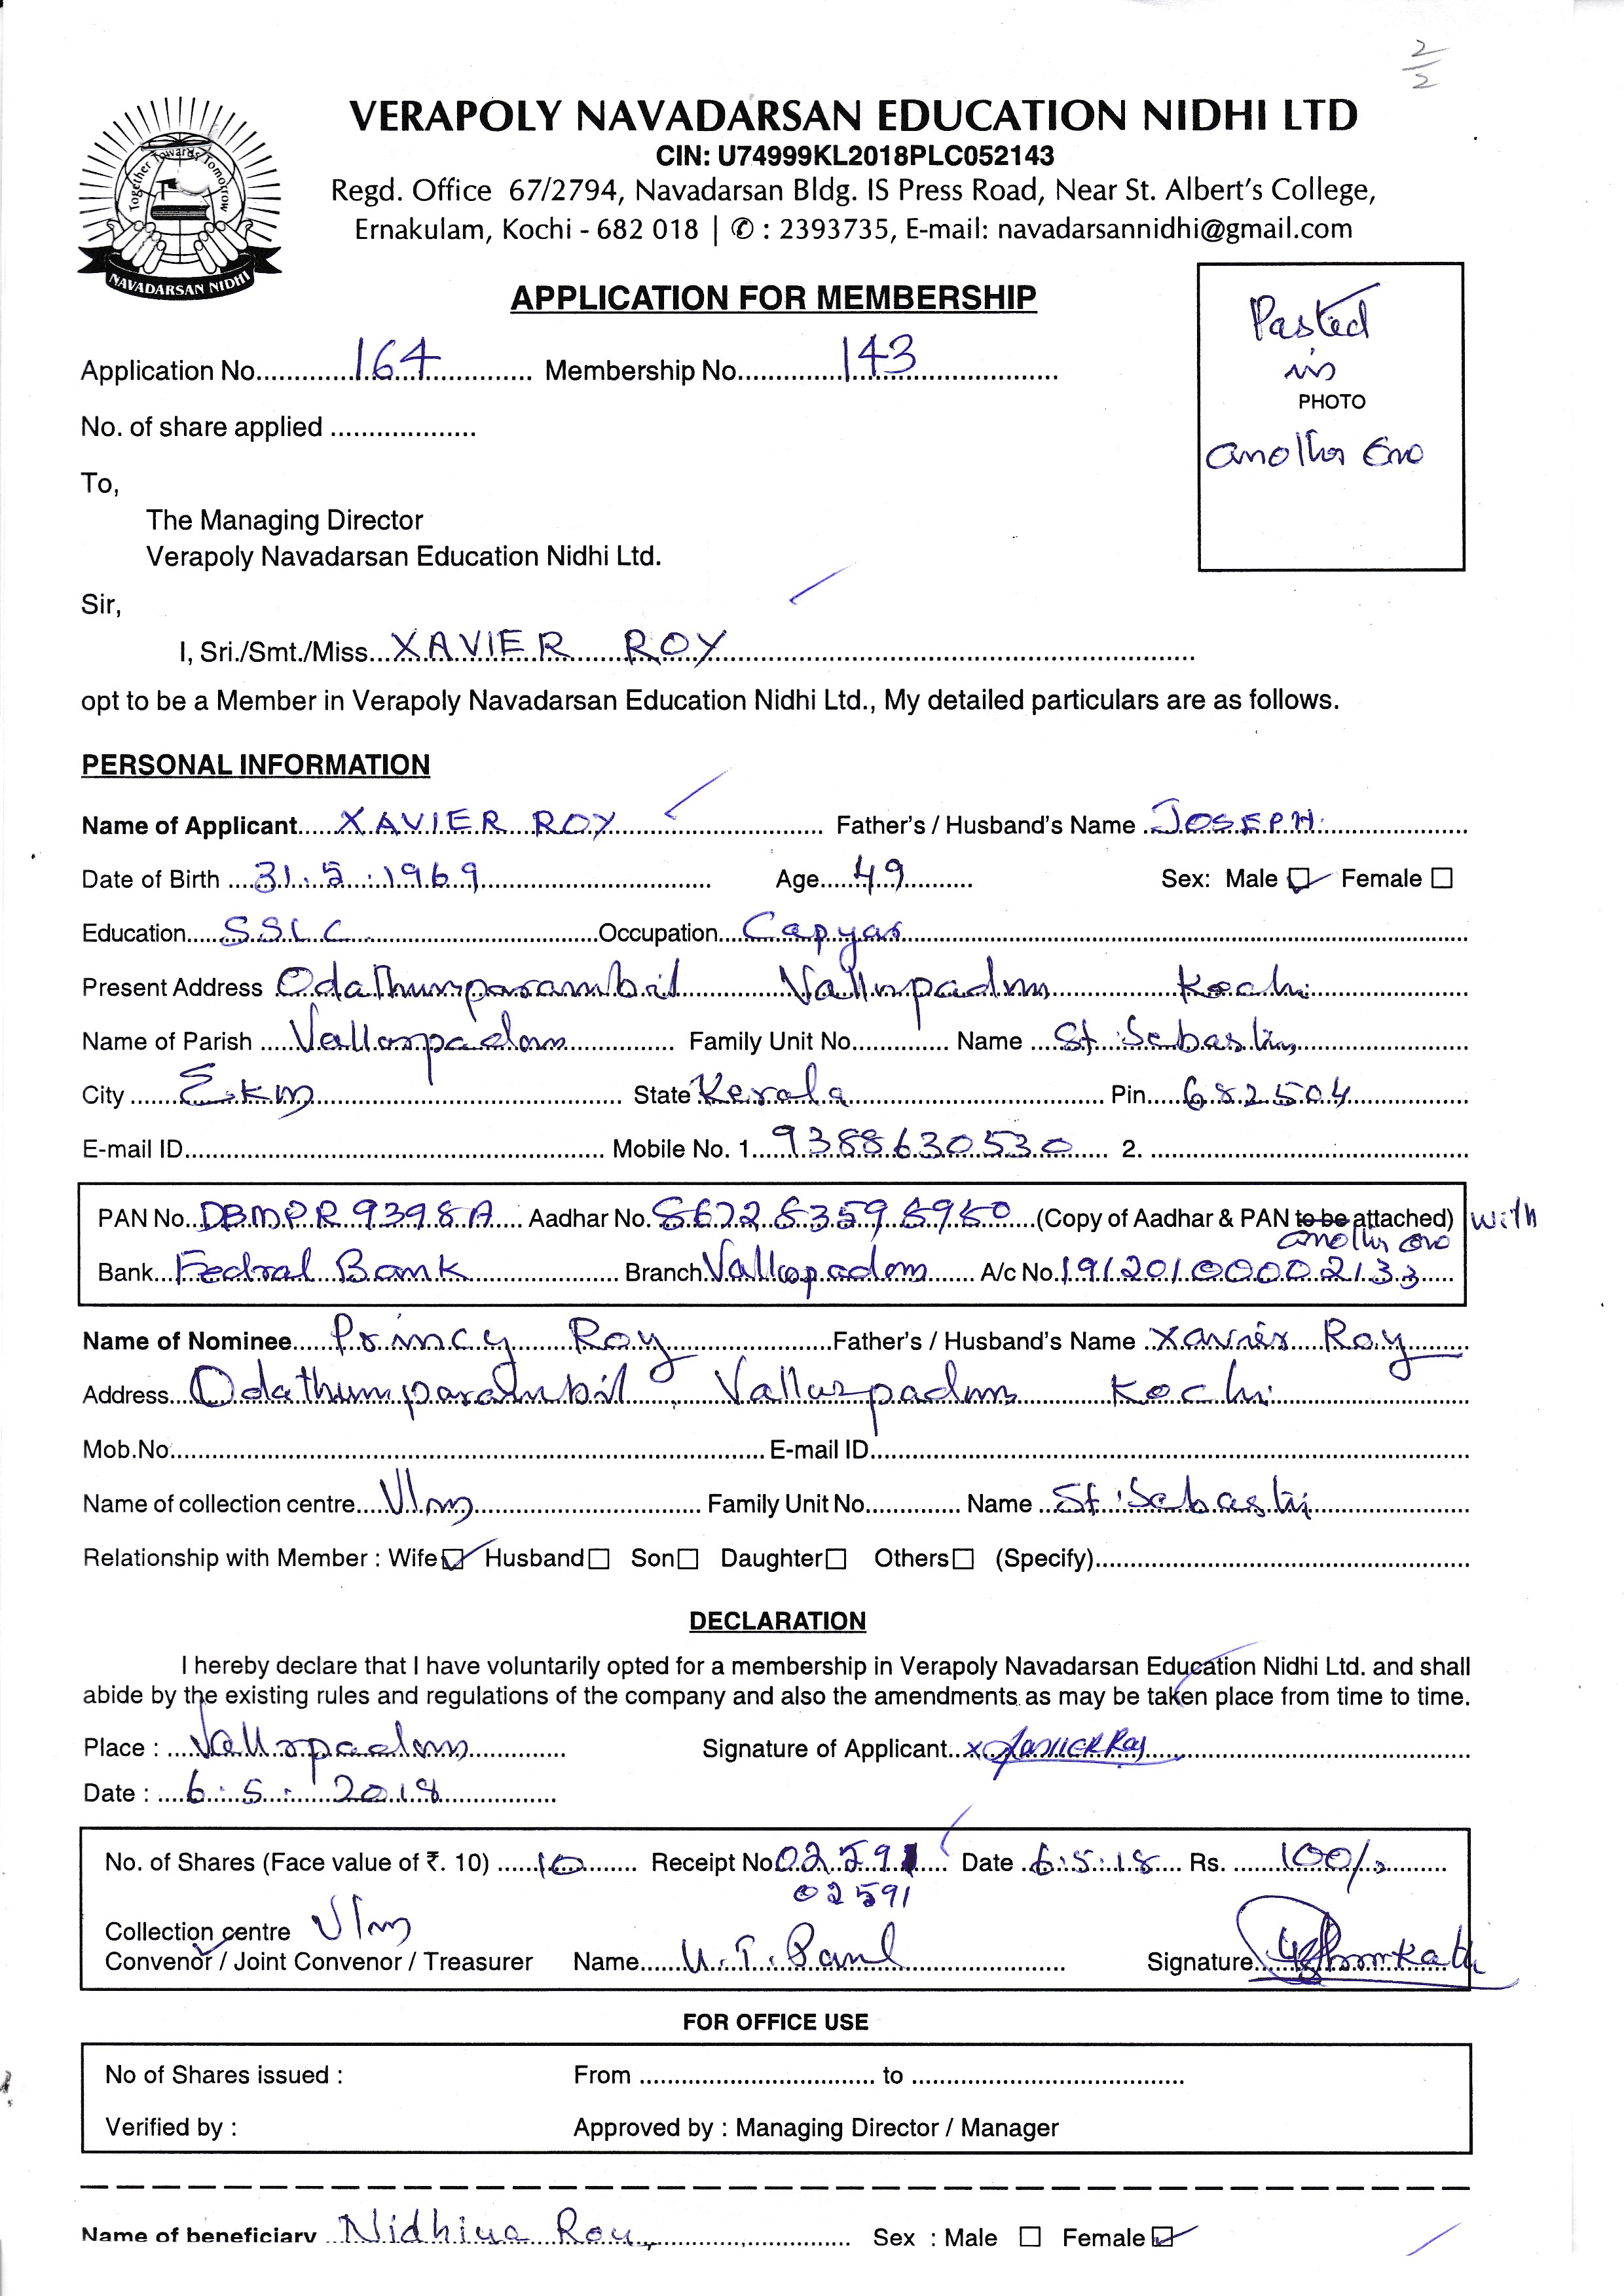 2/2
VERAPOLY NAVADARSAN EDUCATION NIDHI LTD
CIN: U74999KL2018PLC052143
Regd. Office 67/2794, Navadarsan Bldg. IS Press Road, Near St. Albert's College,
Ernakulam, Kochi - 682 018 | ✆ : 2393735, E-mail: navadarsannidhi@gmail.com
Together Towards Tomorrow
NAVADARSAN NIDHI
APPLICATION FOR MEMBERSHIP
Pasted
in
PHOTO
another one
Application No. 164 Membership No. 143
No. of share applied
To,
The Managing Director
Verapoly Navadarsan Education Nidhi Ltd.
Sir,
I, Sri./Smt./Miss. XAVIER ROY
opt to be a Member in Verapoly Navadarsan Education Nidhi Ltd., My detailed particulars are as follows.
PERSONAL INFORMATION
Name of Applicant XAVIER ROY Father's / Husband's Name JOSEPH
Date of Birth 31.5.1969 Age 49 Sex: Male ☑ Female ☐
Education SSLC Occupation
Present Address Odathumparambil Vallarpadam Kochi
Name of Parish Vallarpadam Family Unit No. Name St. Sebastin
City Ekm State Kerala Pin 682504
E-mail ID Mobile No. 1. 9388630530 2.
PAN No. DBMPR9398A Aadhar No. (Copy of Aadhar & PAN to be attached) with
another one
Bank Fedral Bank Branch Vallarpadam A/c No. 19120100002133
Name of Nominee Princy Roy Father's / Husband's Name Xavier Roy
Address Odathumparambil Vallarpadam Kochi
Mob.No. E-mail ID
Name of collection centre Vlm Family Unit No. Name St. Sebastin
Relationship with Member : Wife ☑ Husband ☐ Son ☐ Daughter ☐ Others ☐ (Specify)
DECLARATION
I hereby declare that I have voluntarily opted for a membership in Verapoly Navadarsan Education Nidhi Ltd. and shall
abide by the existing rules and regulations of the company and also the amendments as may be taken place from time to time.
Place : Vallarpadam Signature of Applicant x Xavier Roy
Date : 6.5.2018
No. of Shares (Face value of ₹. 10) 10 Receipt No. 02591 Date 6.5.18 Rs. 100/-
02591
Collection centre Vlm
Convenor / Joint Convenor / Treasurer Name U.T. Paul Signature
FOR OFFICE USE
No of Shares issued : From to
Verified by : Approved by : Managing Director / Manager
Name of beneficiary Nidhiya Roy Sex : Male ☐ Female ☑